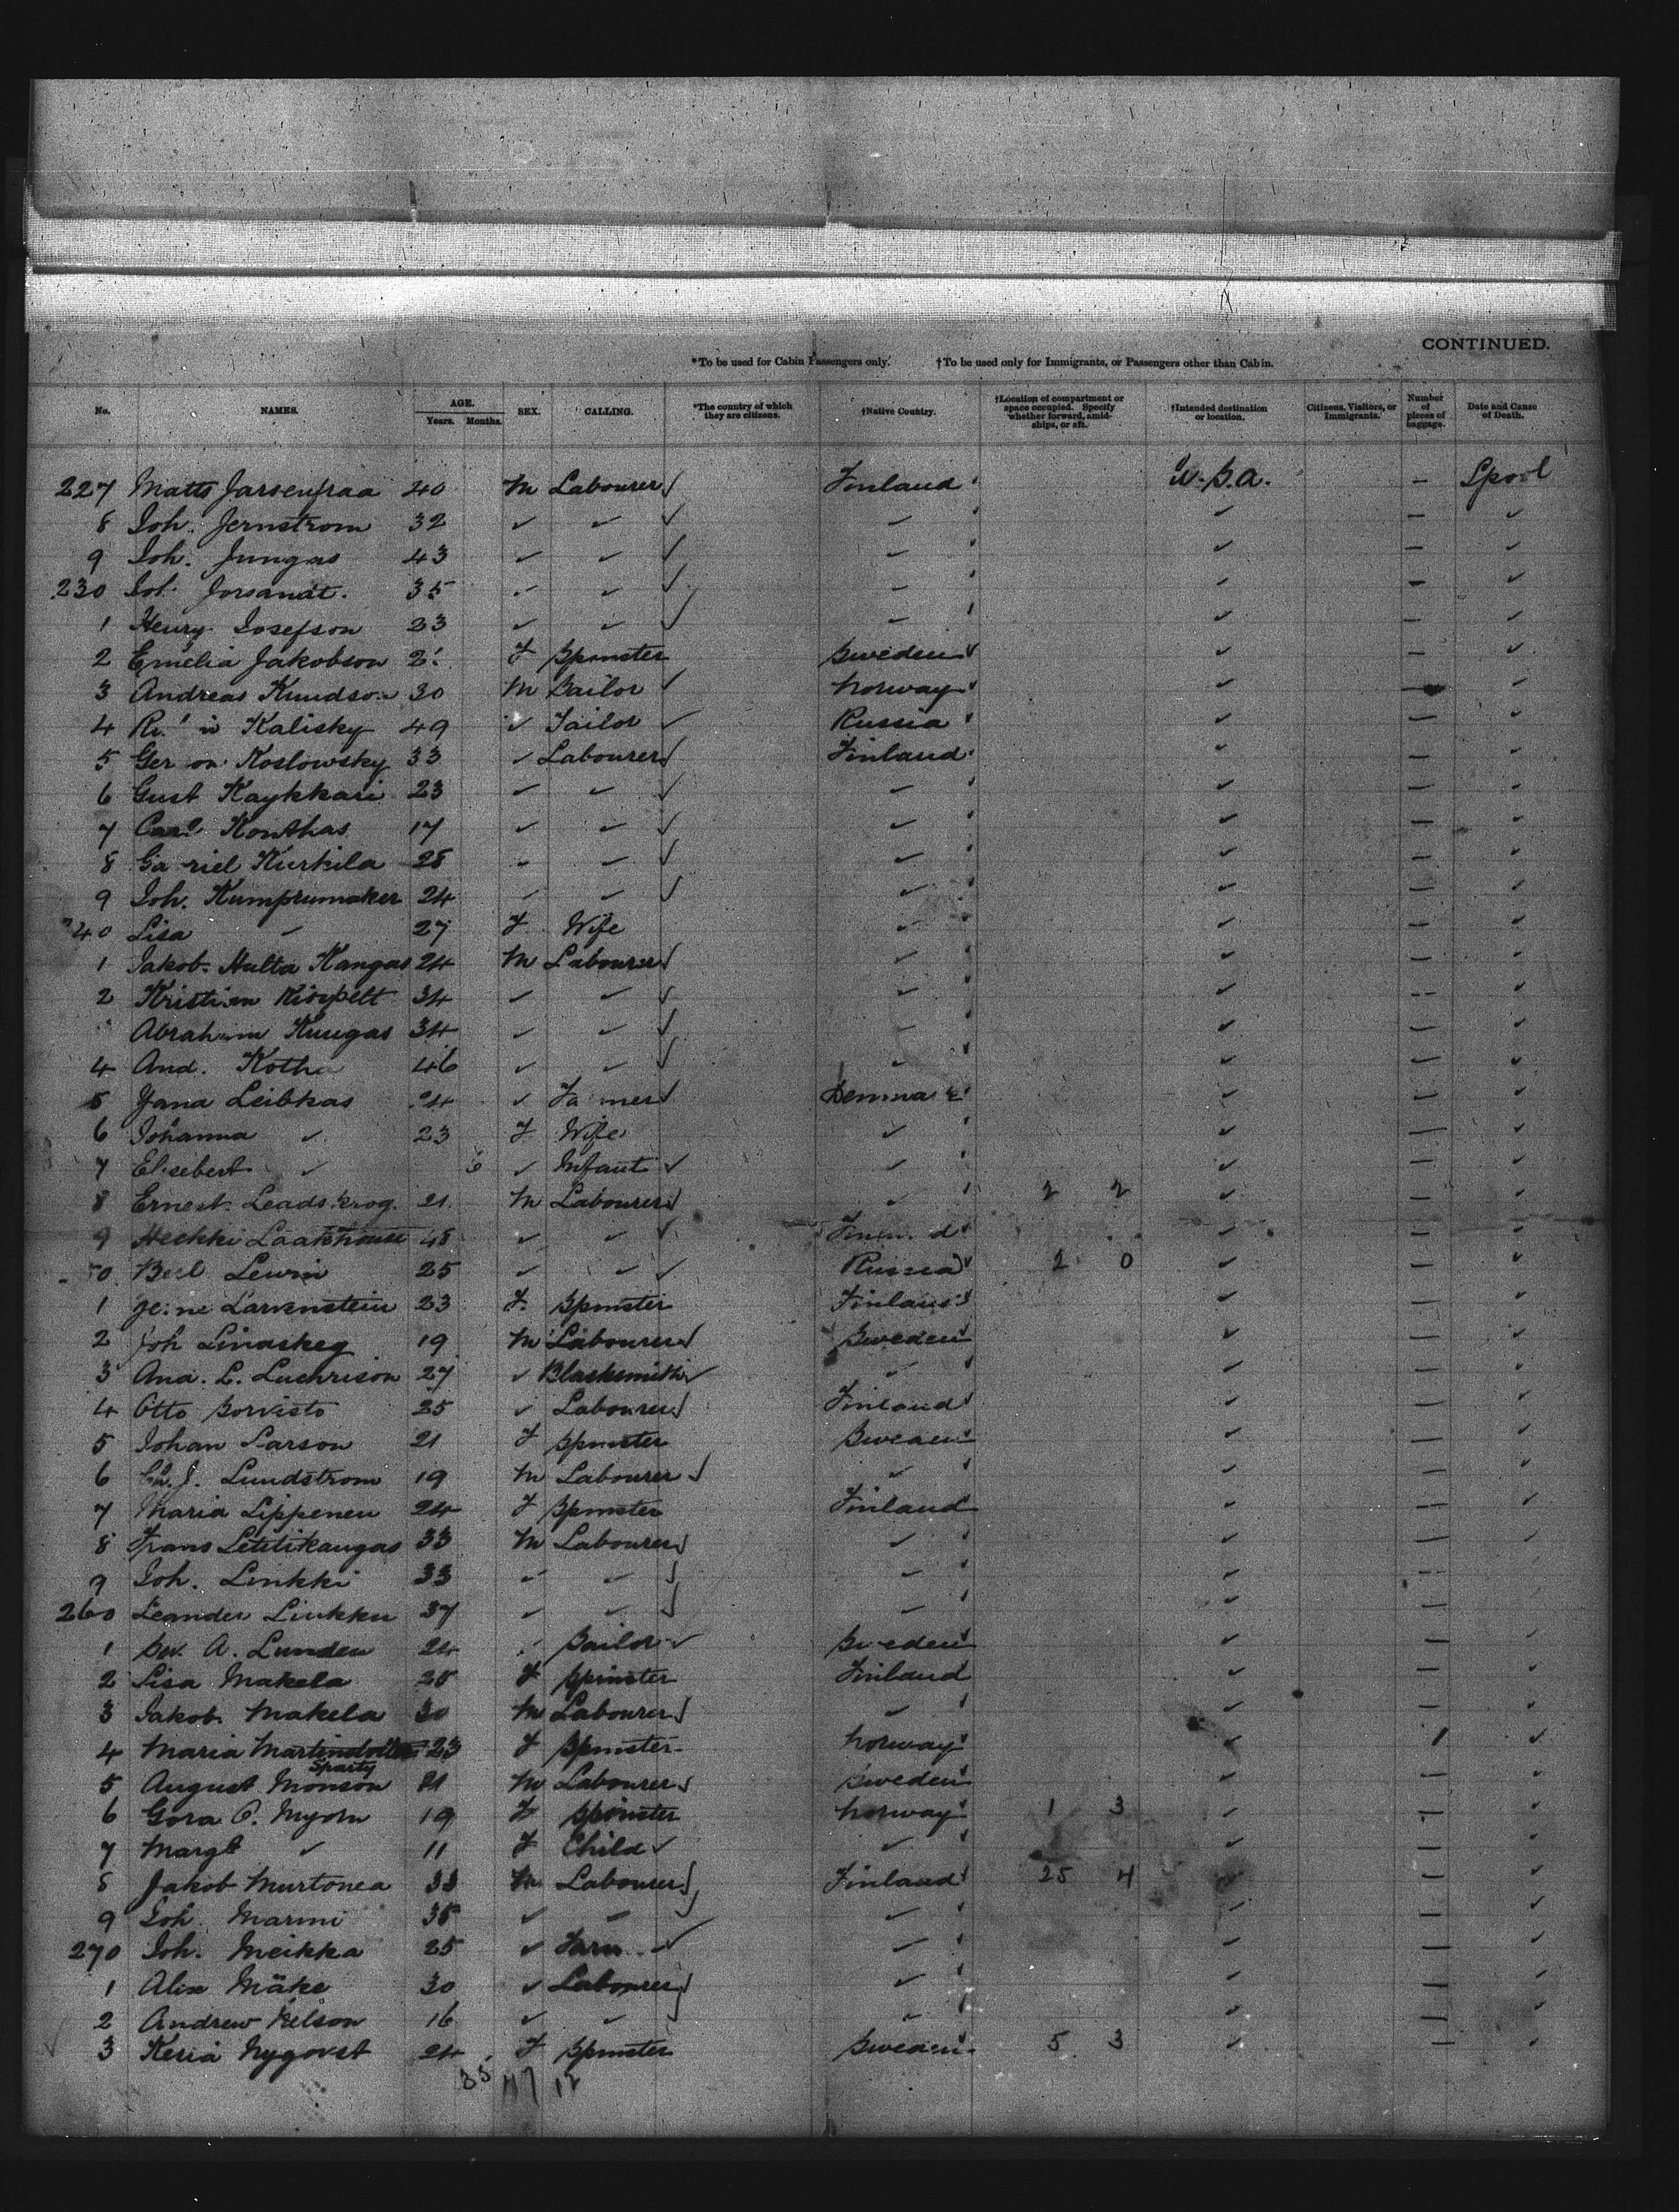 CONTINUED.
*To be used for Cabin Passengers only. †To be used only for Immigrants, or Passengers other than Cabin.
No. NAMES. AGE. Years. Months. SEX. CALLING. *The country of which they are citizens. †Native Country. †Location of compartment or space occupied. Specify whether forward, amidships, or aft. †Intended destination or location. Citizens, Visitors, or Immigrants. Number of pieces of baggage. Date and Cause of Death.
227 Matts Jarsenfraa 40 M Labourer Finland U.S.A. — Lpool
8 Joh. Jernstrom 32 ✓ ✓ ✓ ✓ — ✓
9 Joh. Jungas 43 ✓ ✓ ✓ ✓ — ✓
230 Joh. Jorsandt. 35 ✓ ✓ ✓ ✓ — ✓
1 Henry Josefson 23 ✓ ✓ ✓ ✓ — ✓
2 Emelia Jakobson F Spinster Sweden ✓ — ✓
3 Andreas Knudson 30 M Sailor Norway ✓ — ✓
4 Kalisky 49 ✓ Tailor Russia ✓ — ✓
5 Koslowsky 33 ✓ Labourer Finland ✓ — ✓
6 Gust Kaykkari 23 ✓ ✓ ✓ ✓ — ✓
7 Carl Konthas 17 ✓ ✓ ✓ ✓ — ✓
8 Ga riel Kurkila 28 ✓ ✓ ✓ ✓ — ✓
9 Joh. Kumprumaker 24 ✓ ✓ ✓ ✓ — ✓
240 Lisa ✓ 27 F Wife ✓ ✓ — ✓
1 Jakob Hulta Kangas 24 M Labourer ✓ ✓ — ✓
2 Kristian 34 ✓ ✓ ✓ ✓ — ✓
Abraham Kuugas 34 ✓ ✓ ✓ ✓ — ✓
4 And. Kotha 46 ✓ ✓ ✓ ✓ — ✓
5 Yana Leibkas 24 ✓ Fa mer Denma k ✓ — ✓
6 Johanna ✓ 23 F Wife ✓ ✓ — ✓
7 Elisebert ✓ ✓ Infant ✓ ✓ — ✓
8 Ernest Leadskrog. 21 M Labourer ✓ 2 2 ✓ — ✓
9 Heikki Laakhouse 48 ✓ ✓ ✓ — ✓
50 Berl Lewin 25 ✓ ✓ Russia 2 0 ✓ — ✓
1 Larvenstein 23 F Spinster Finland ✓ — ✓
2 Joh Linaskeg 19 M Labourer Sweden ✓ — ✓
3 And. L. Luchrison 27 ✓ Blacksmith ✓ ✓ — ✓
4 Otto Sorvisto 25 ✓ Labourer Finland ✓ — ✓
5 Johan Larson 21 F Spinster Sweden ✓ — ✓
6 J. Lundstrom 19 M Labourer ✓ ✓ — ✓
7 Maria Lippenen 24 F Spinster Finland ✓ — ✓
8 Frans Letetikangas 33 M Labourer ✓ ✓ — ✓
9 Joh. Linkki 33 ✓ ✓ ✓ ✓ —
260 Leander Linkku 37 ✓ ✓ ✓ ✓ —
1 A. Lunden 24 ✓ Sailor Sweden ✓ — ✓
2 Lisa Makela 28 F Spinster Finland ✓ — ✓
3 Jakob Makela 30 M Labourer ✓ ✓ — ✓
4 Maria 23 F Spinster Norway ✓ 1 ✓
Sparty
5 August Monson 21 M Labourer Sweden ✓ — ✓
6 Gora O. Myorn 19 F Spinster Norway 1 3 ✓ — ✓
7 Margt ✓ 11 F Child ✓ ✓ — ✓
8 Jakob Murtonea 33 M Labourer Finland 25 4 ✓ — ✓
9 Joh. Marmi 35 ✓ ✓ ✓ ✓ — ✓
270 Joh. Meikka 25 ✓ Farm ✓ ✓ — ✓
1 Alex Mäke 30 ✓ Labourer ✓ ✓ — ✓
2 Andrew Nelson 16 ✓ ✓ ✓ ✓ — ✓
3 Keria Nyqovst 24 F Spinster Sweden 5 3 ✓ — ✓
35 47 12